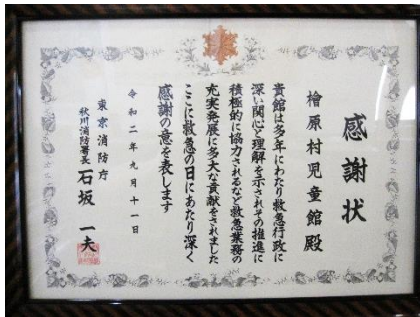 感謝状
檜原村児童館殿
貴館は多年にわたり救急行政に
深い関心と理解を示されその推進に
積極的に協力されるなど救急業務の
充実発展に多大な貢献をされました
ここに救急の日にあたり深く
感謝の意を表します
令和二年九月十一日
東京消防庁
秋川消防署長 石坂一夫